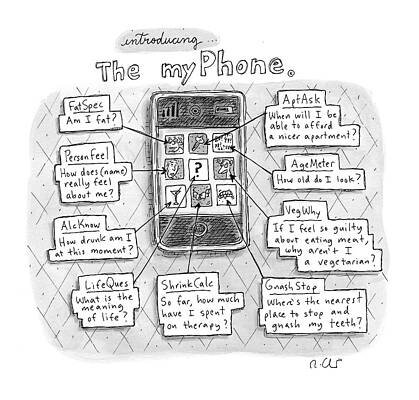 introducing...
The myPhone.
FatSpec
Am I fat?
AptAsk
When will I be
able to afford
a nicer apartment?
PersonFeel
How does (name)
really feel
about me?
AgeMeter
How old do I look?
AlcKnow
How drunk am I
at this moment?
VegWhy
If I feel so guilty
about eating meat,
why aren't I
a vegetarian?
LifeQues
What is the
meaning
of life?
ShrinkCalc
So far, how much
have I spent
on therapy?
GnashStop
Where's the nearest
place to stop and
gnash my teeth?
?
R. Chast